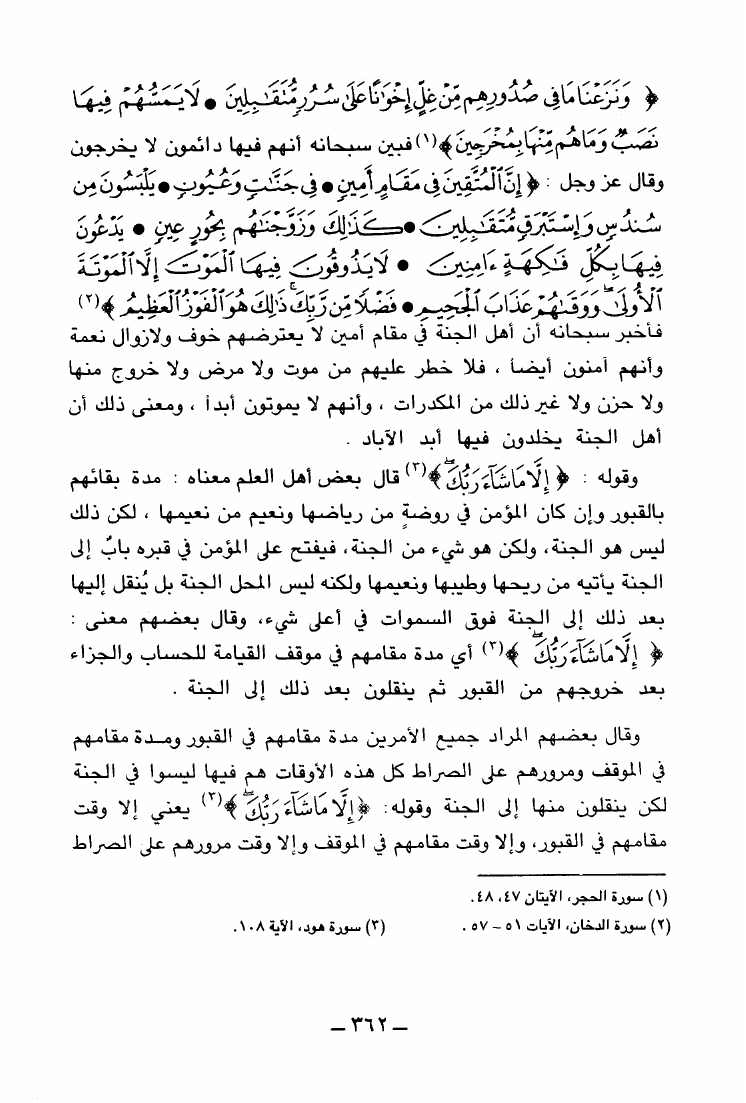 ﴿ وَنَزَعْنَا مَا فِي صُدُورِهِم مِّنْ غِلٍّ إِخْوَٰنًا عَلَىٰ سُرُرٍ مُّتَقَـٰبِلِينَ • لَا يَمَسُّهُمْ فِيهَا
نَصَبٌ وَمَا هُم مِّنْهَا بِمُخْرَجِينَ ﴾(١) فبين سبحانه أنهم فيها دائمون لا يخرجون
وقال عز وجل : ﴿ إِنَّ ٱلْمُتَّقِينَ فِي مَقَامٍ أَمِينٍ • فِي جَنَّـٰتٍ وَعُيُونٍ • يَلْبَسُونَ مِن
سُندُسٍ وَإِسْتَبْرَقٍ مُّتَقَـٰبِلِينَ • كَذَٰلِكَ وَزَوَّجْنَـٰهُم بِحُورٍ عِينٍ • يَدْعُونَ
فِيهَا بِكُلِّ فَـٰكِهَةٍ ءَامِنِينَ • لَا يَذُوقُونَ فِيهَا ٱلْمَوْتَ إِلَّا ٱلْمَوْتَةَ
ٱلْأُولَىٰ ۖ وَوَقَـٰهُمْ عَذَابَ ٱلْجَحِيمِ • فَضْلًا مِّن رَّبِّكَ ۚ ذَٰلِكَ هُوَ ٱلْفَوْزُ ٱلْعَظِيمُ ﴾(٢)
فأخبر سبحانه أن أهل الجنة في مقام أمين لا يعترضهم خوف ولا زوال نعمة
وأنهم آمنون أيضاً ، فلا خطر عليهم من موت ولا مرض ولا خروج منها
ولا حزن ولا غير ذلك من المكدرات ، وأنهم لا يموتون أبداً ، ومعنى ذلك أن
أهل الجنة يخلدون فيها أبد الآباد .
وقوله : ﴿ إِلَّا مَا شَآءَ رَبُّكَ ۖ ﴾(٣) قال بعض أهل العلم معناه : مدة بقائهم
بالقبور وإن كان المؤمن في روضةٍ من رياضها ونعيم من نعيمها ، لكن ذلك
ليس هو الجنة، ولكن هو شيء من الجنة، فيفتح على المؤمن في قبره بابٌ إلى
الجنة يأتيه من ريحها وطيبها ونعيمها ولكنه ليس المحل الجنة بل يُنقل إليها
بعد ذلك إلى الجنة فوق السموات في أعلى شيء، وقال بعضهم معنى :
﴿ إِلَّا مَا شَآءَ رَبُّكَ ۖ ﴾(٣) أي مدة مقامهم في موقف القيامة للحساب والجزاء
بعد خروجهم من القبور ثم ينقلون بعد ذلك إلى الجنة .
وقال بعضهم المراد جميع الأمرين مدة مقامهم في القبور ومدة مقامهم
في الموقف ومرورهم على الصراط كل هذه الأوقات هم فيها ليسوا في الجنة
لكن ينقلون منها إلى الجنة وقوله: ﴿ إِلَّا مَا شَآءَ رَبُّكَ ۖ ﴾(٣) يعني إلا وقت
مقامهم في القبور، وإلا وقت مقامهم في الموقف وإلا وقت مرورهم على الصراط
(١) سورة الحجر، الآيتان ٤٧، ٤٨.
(٢) سورة الدخان، الآيات ٥١ – ٥٧ . (٣) سورة هود، الآية ١٠٨.
– ٣٦٢ –